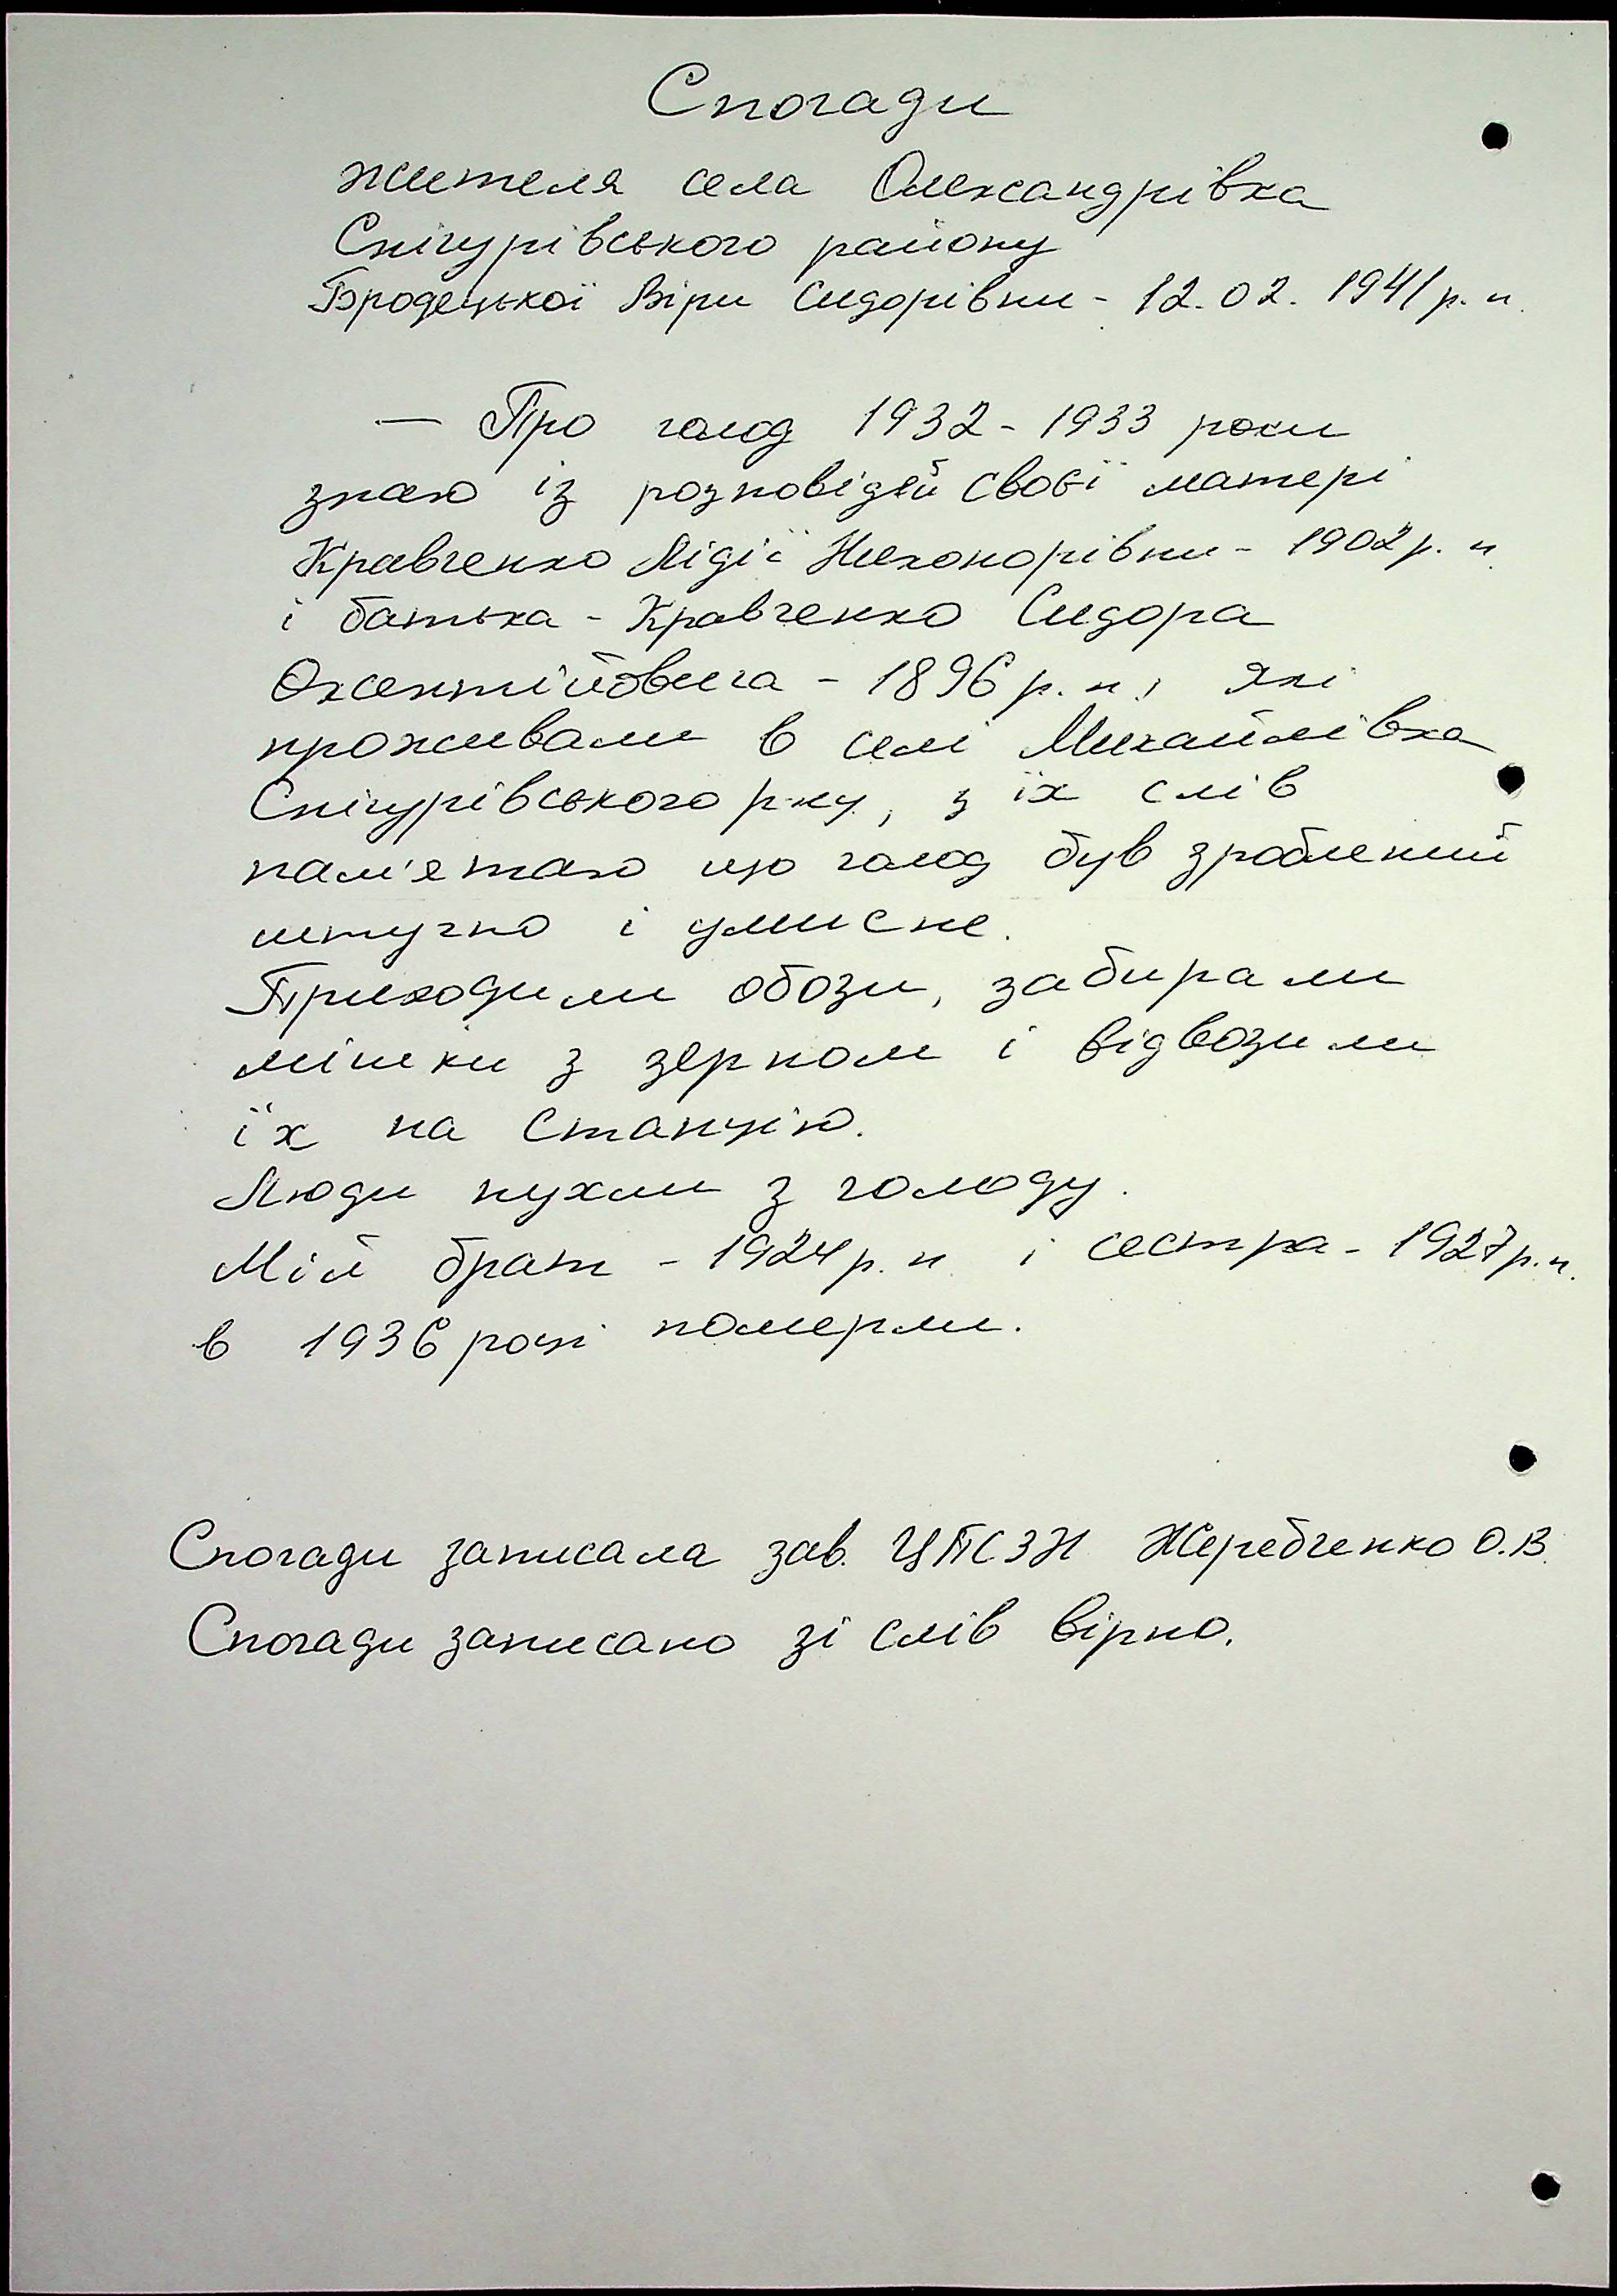 Спогади
жителя села Олександрівка
Снігурівського району
Бродецької Віри Сидорівни - 12.02. 1941 р. н.
— Про голод 1932 - 1933 роки
знаю із розповідей своєї матері
Кравченко Лідії Никонорівни - 1902 р. н.
і батька - Кравченко Сидора
Оксентійовича - 1896 р. н., які
проживали в селі Михайлівка
Снігурівського р-ну, з їх слів
пам'ятаю що голод був зроблений
штучно і умисне.
Приходили обози, забирали
мішки з зерном і відвозили
їх на станцію.
Люди пухли з голоду.
Мій брат - 1924 р. н. і сестра - 1927 р. н.
в 1936 році померли.
Спогади записала зав. ЦПСЗН Жеребченко О.В.
Спогади записано зі слів вірно.